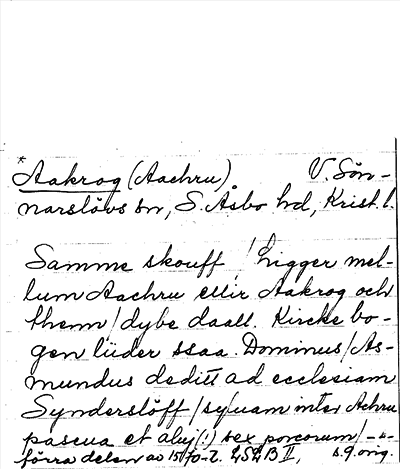 *Aakrog (Aachru) V. Sön-
narslövs sn, S. Åsbo hd, Krist. l.
Samme skouff / Ligger mel-
lum Aachru ellir Aakrog och
themm / dybe daall. Kircke bo-
gen lüder ssaa. Dominus / As-
mundus deditt ad ecclesiam
Synderslöff / syluam inter Achru
pascua et aluj (!) sex porcorum / -"-
förra delen av 1570-t. LSLB II, s. 9. orig.